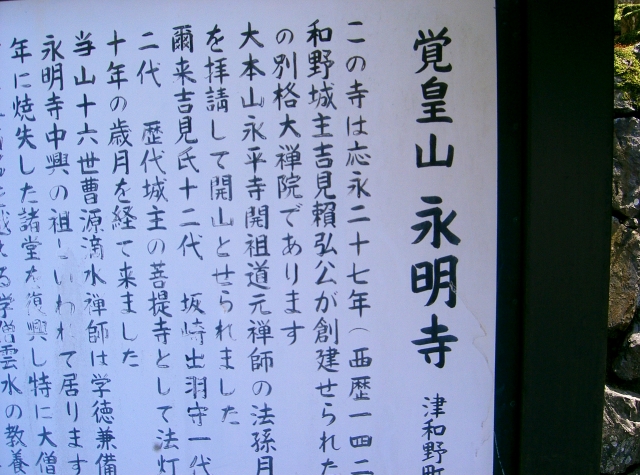 覚皇山 永明寺
津和野町
この寺は応永二十七年（西歴一四二
和野城主吉見頼弘公が創建せられた
の別格大禅院であります
大本山永平寺開祖道元禅師の法孫月
を拝請して開山とせられました
爾来吉見氏十二代 坂崎出羽守一代
二代 歴代城主の菩提寺として法灯
十年の歳月を経て来ました
当山十六世曹源滴水禅師は学徳兼備
永明寺中興の祖といわれて居ります
年に焼失した諸堂を復興し特に大僧
える学僧雲水の教養